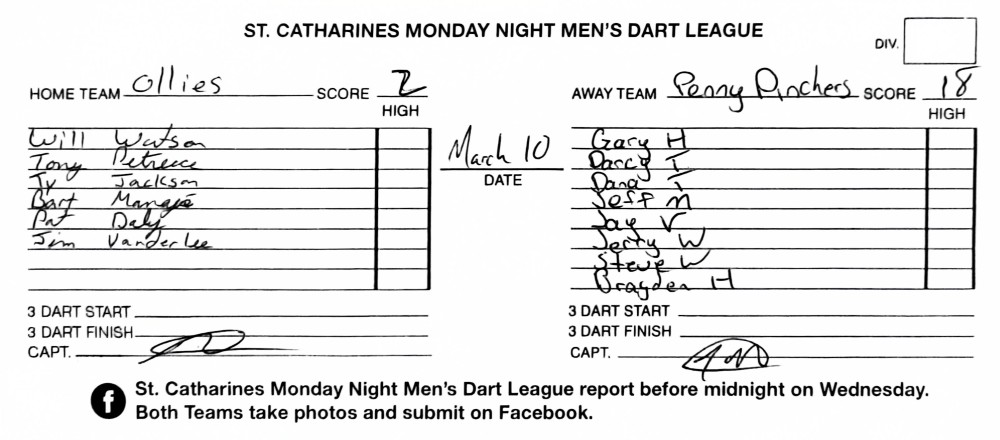 ST. CATHARINES MONDAY NIGHT MEN'S DART LEAGUE
DIV.
HOME TEAM Ollies SCORE 2
HIGH
AWAY TEAM Penny Pinchers SCORE 18
HIGH
Will Watson
Tony
Ty Jackson
Bart
Pat Daly
Jim Vanderlee
March 10
DATE
Gary H
Darcy T
Dana T
Jeff M
Jay V
Jerry W
Steve W
Brayden H
3 DART START
3 DART FINISH
CAPT.
3 DART START
3 DART FINISH
CAPT.
f St. Catharines Monday Night Men's Dart League report before midnight on Wednesday.
Both Teams take photos and submit on Facebook.